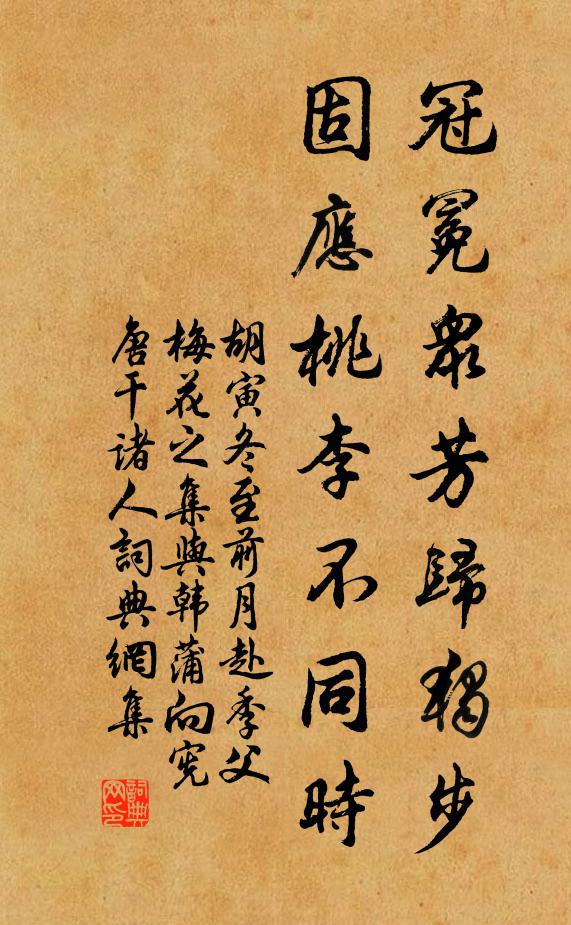 冠冕衆芳歸獨步
固應桃李不同時
胡寅冬至前月赴季父
梅花之集與韩蒲向憲
唐干诸人詞典網集
詞典网印